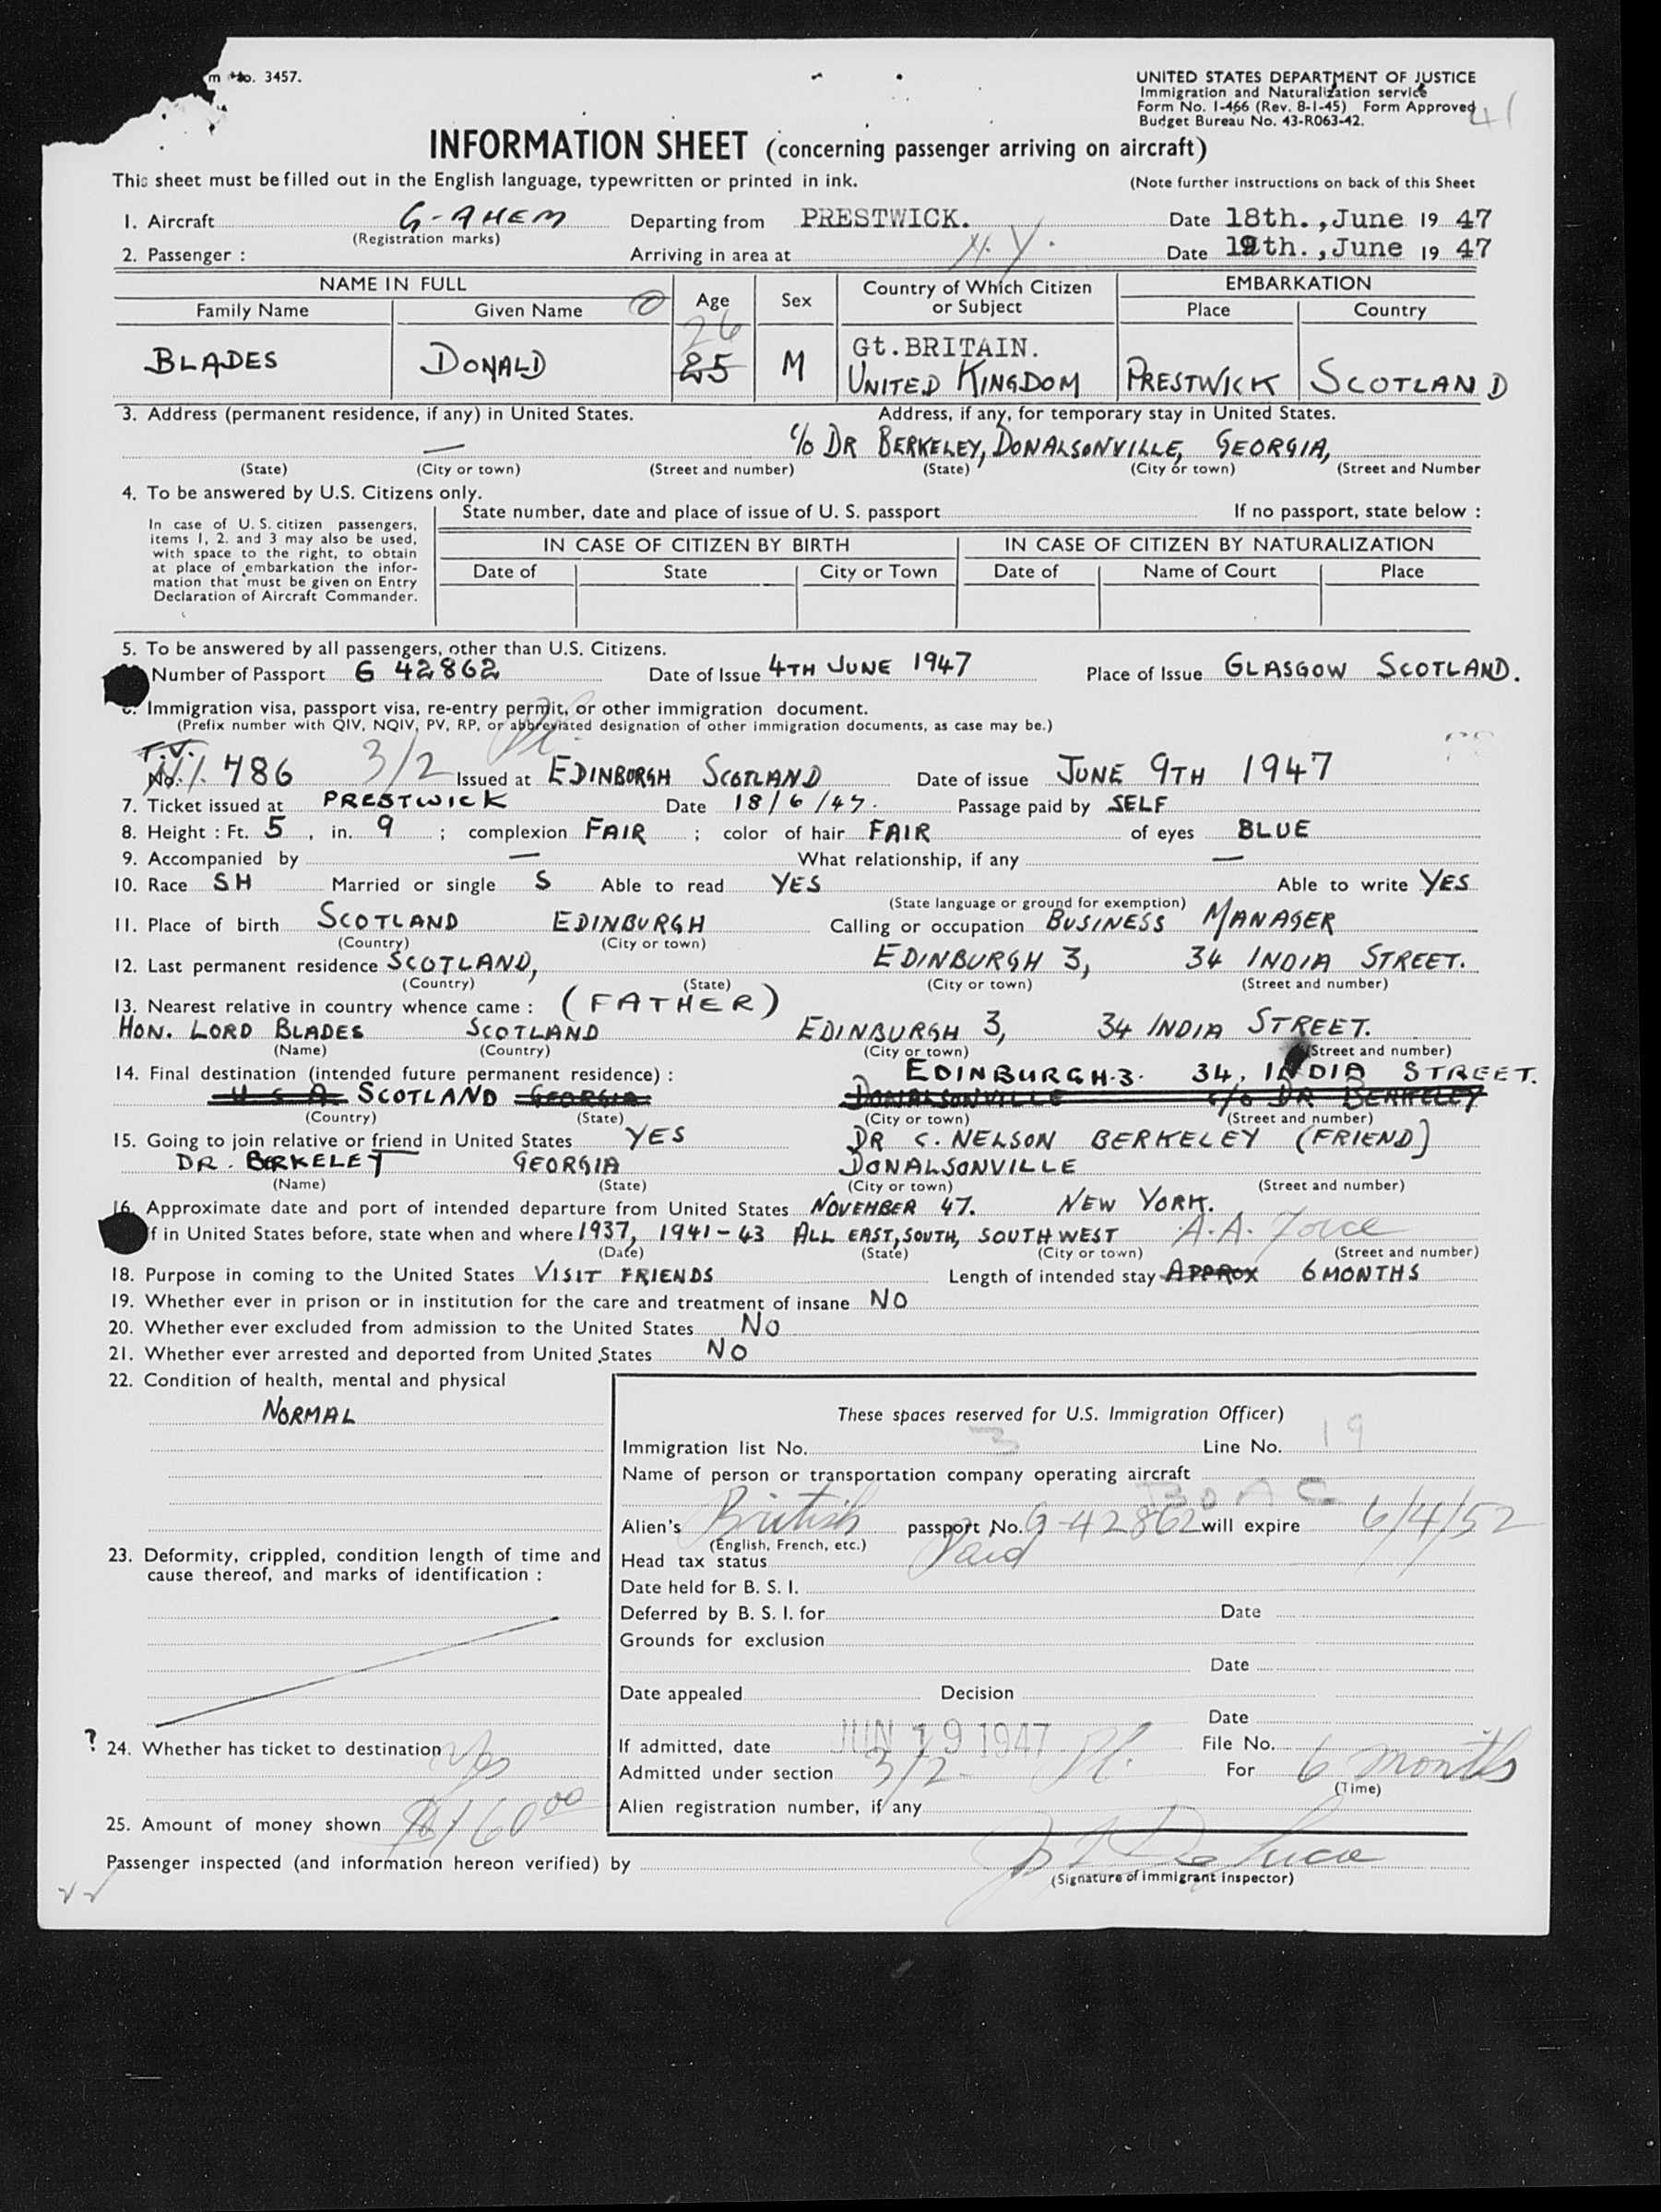 m No. 3457.
UNITED STATES DEPARTMENT OF JUSTICE
Immigration and Naturalization service
Form No. I-466 (Rev. 8-1-45) Form Approved
Budget Bureau No. 43-R063-42.
41
INFORMATION SHEET (concerning passenger arriving on aircraft)
This sheet must be filled out in the English language, typewritten or printed in ink. (Note further instructions on back of this Sheet
1. Aircraft G-AHEM Departing from PRESTWICK. Date 18th., June 19 47
(Registration marks)
2. Passenger : Arriving in area at N.Y. Date 19th., June 19 47
NAME IN FULL Age Sex Country of Which Citizen or Subject EMBARKATION
Family Name Given Name Place Country
26
Gt. BRITAIN.
BLADES DONALD 25 M UNITED KINGDOM PRESTWICK SCOTLAND
3. Address (permanent residence, if any) in United States. Address, if any, for temporary stay in United States.
— c/o DR BERKELEY, DONALSONVILLE, GEORGIA,
(State) (City or town) (Street and number) (State) (City or town) (Street and Number
4. To be answered by U.S. Citizens only.
State number, date and place of issue of U. S. passport If no passport, state below :
In case of U. S. citizen passengers,
items 1, 2. and 3 may also be used,
with space to the right, to obtain
at place of embarkation the infor-
mation that must be given on Entry
Declaration of Aircraft Commander.
IN CASE OF CITIZEN BY BIRTH IN CASE OF CITIZEN BY NATURALIZATION
Date of State City or Town Date of Name of Court Place
5. To be answered by all passengers, other than U.S. Citizens.
Number of Passport G 42862 Date of Issue 4TH JUNE 1947 Place of Issue GLASGOW SCOTLAND.
6. Immigration visa, passport visa, re-entry permit, or other immigration document.
(Prefix number with QIV, NQIV, PV, RP, or abbreviated designation of other immigration documents, as case may be.)
T.V.
No. 486 3/2 Issued at EDINBURGH SCOTLAND Date of issue JUNE 9TH 1947
7. Ticket issued at PRESTWICK Date 18/6/47. Passage paid by SELF
8. Height : Ft. 5, in. 9 ; complexion FAIR ; color of hair FAIR of eyes BLUE
9. Accompanied by — What relationship, if any —
10. Race SH Married or single S Able to read YES Able to write YES
(State language or ground for exemption)
11. Place of birth SCOTLAND EDINBURGH Calling or occupation BUSINESS MANAGER
(Country) (City or town)
12. Last permanent residence SCOTLAND, EDINBURGH 3, 34 INDIA STREET.
(Country) (State) (City or town) (Street and number)
13. Nearest relative in country whence came : (FATHER)
HON. LORD BLADES SCOTLAND EDINBURGH 3, 34 INDIA STREET.
(Name) (Country) (City or town) (Street and number)
14. Final destination (intended future permanent residence) : EDINBURGH.3. 34, INDIA STREET.
U S A SCOTLAND GEORGIA DONALSONVILLE c/o DR BERKELEY
(Country) (State) (City or town) (Street and number)
15. Going to join relative or friend in United States YES DR C. NELSON BERKELEY (FRIEND)
DR. BERKELEY GEORGIA DONALSONVILLE
(Name) (State) (City or town) (Street and number)
16. Approximate date and port of intended departure from United States NOVEMBER 47. NEW YORK.
If in United States before, state when and where 1937, 1941-43 ALL EAST, SOUTH, SOUTHWEST A.A. Force
(Date) (State) (City or town) (Street and number)
18. Purpose in coming to the United States VISIT FRIENDS Length of intended stay APPROX 6 MONTHS
19. Whether ever in prison or in institution for the care and treatment of insane NO
20. Whether ever excluded from admission to the United States NO
21. Whether ever arrested and deported from United States NO
22. Condition of health, mental and physical
NORMAL
These spaces reserved for U.S. Immigration Officer)
Immigration list No. 3 Line No. 19
Name of person or transportation company operating aircraft
BOAC
Alien's British passport No. G-42862 will expire 6/4/52
(English, French, etc.)
Head tax status Paid
23. Deformity, crippled, condition length of time and
cause thereof, and marks of identification :
Date held for B. S. I.
Deferred by B. S. I. for Date
Grounds for exclusion
Date
Date appealed Decision
Date
? 24. Whether has ticket to destination Yes
If admitted, date JUN 19 1947 File No.
Admitted under section 3/2 For 6 months
(Time)
Alien registration number, if any
25. Amount of money shown $160 00
Passenger inspected (and information hereon verified) by
(Signature of immigrant Inspector)